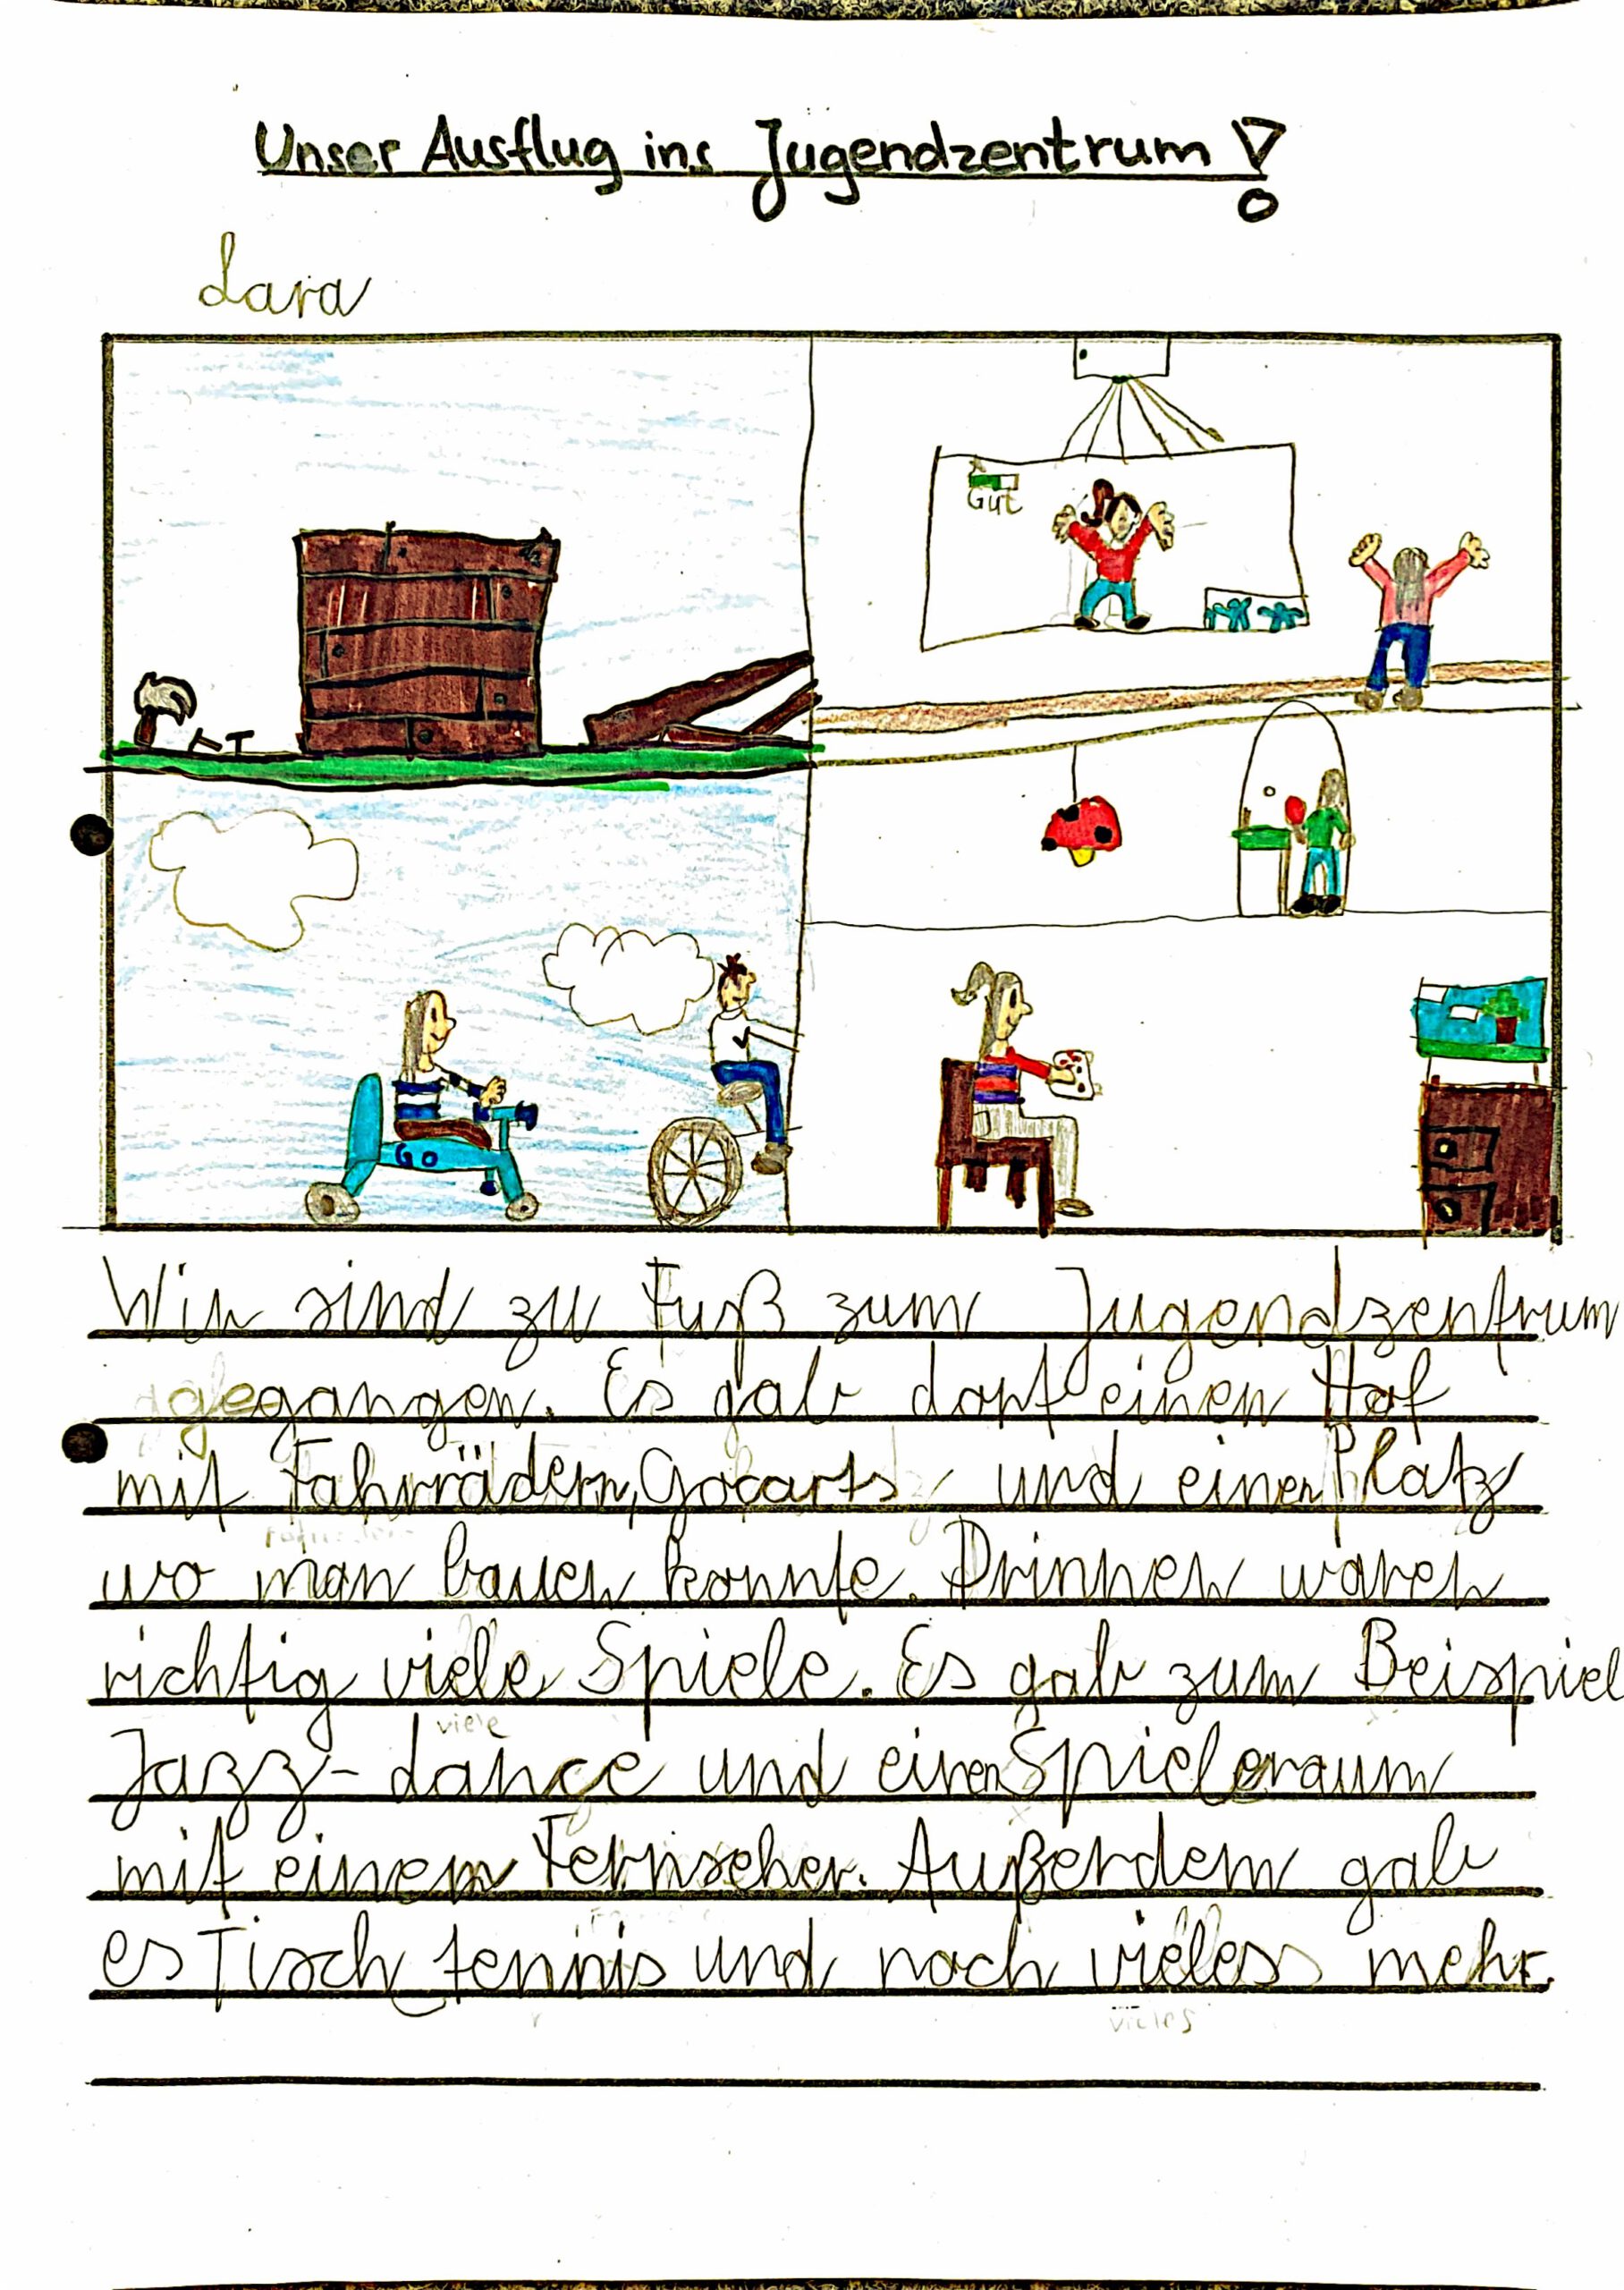 Unser Ausflug ins Jugendzentrum!
Lara
Gut
GO
Wir sind zu Fuß zum Jugendzentrum
gegangen. Es gab dort einen Hof
mit Fahrrädern, Gocarts und einen Platz
wo man bauen konnte. Drinnen waren
richtig viele Spiele. Es gab zum Beispiel
viele
Jazz-dance und einen Spieleraum
mit einem Fernseher. Außerdem gab
es Tischtennis und noch vieless mehr.
vieles